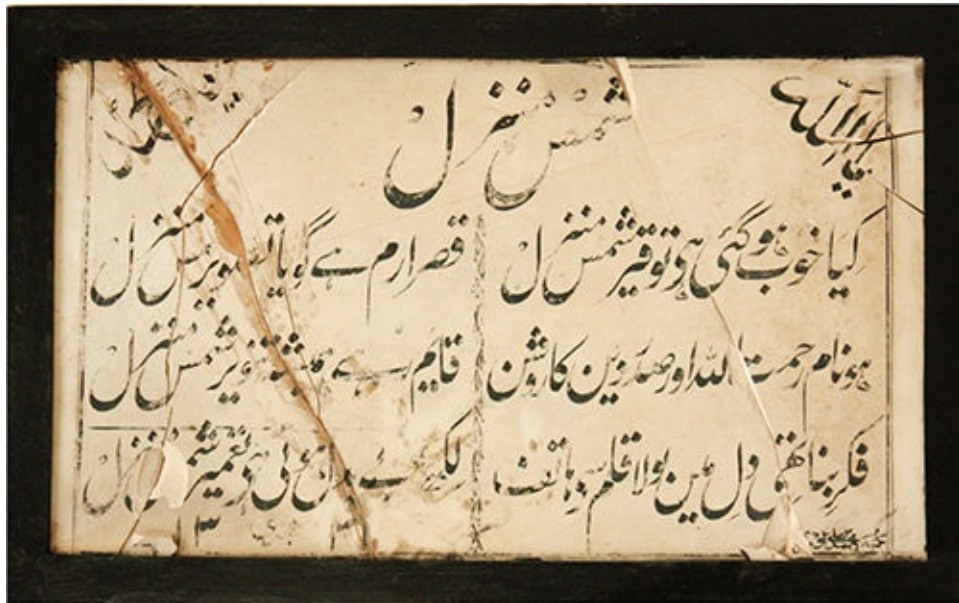 یا اللہ
شمس منزل
کیا خوب ہو گئی ہے توقیر شمس منزل
قصر ارم ہے گویا تصویر شمس منزل
ہو نام رحمت اللہ اور صدر دین کا روشن
قایم رہے ہمیشہ تنویر شمس منزل
فکر بنا تھی دل میں بولا قلم ہاتف
لکھ تعمیر شمس منزل